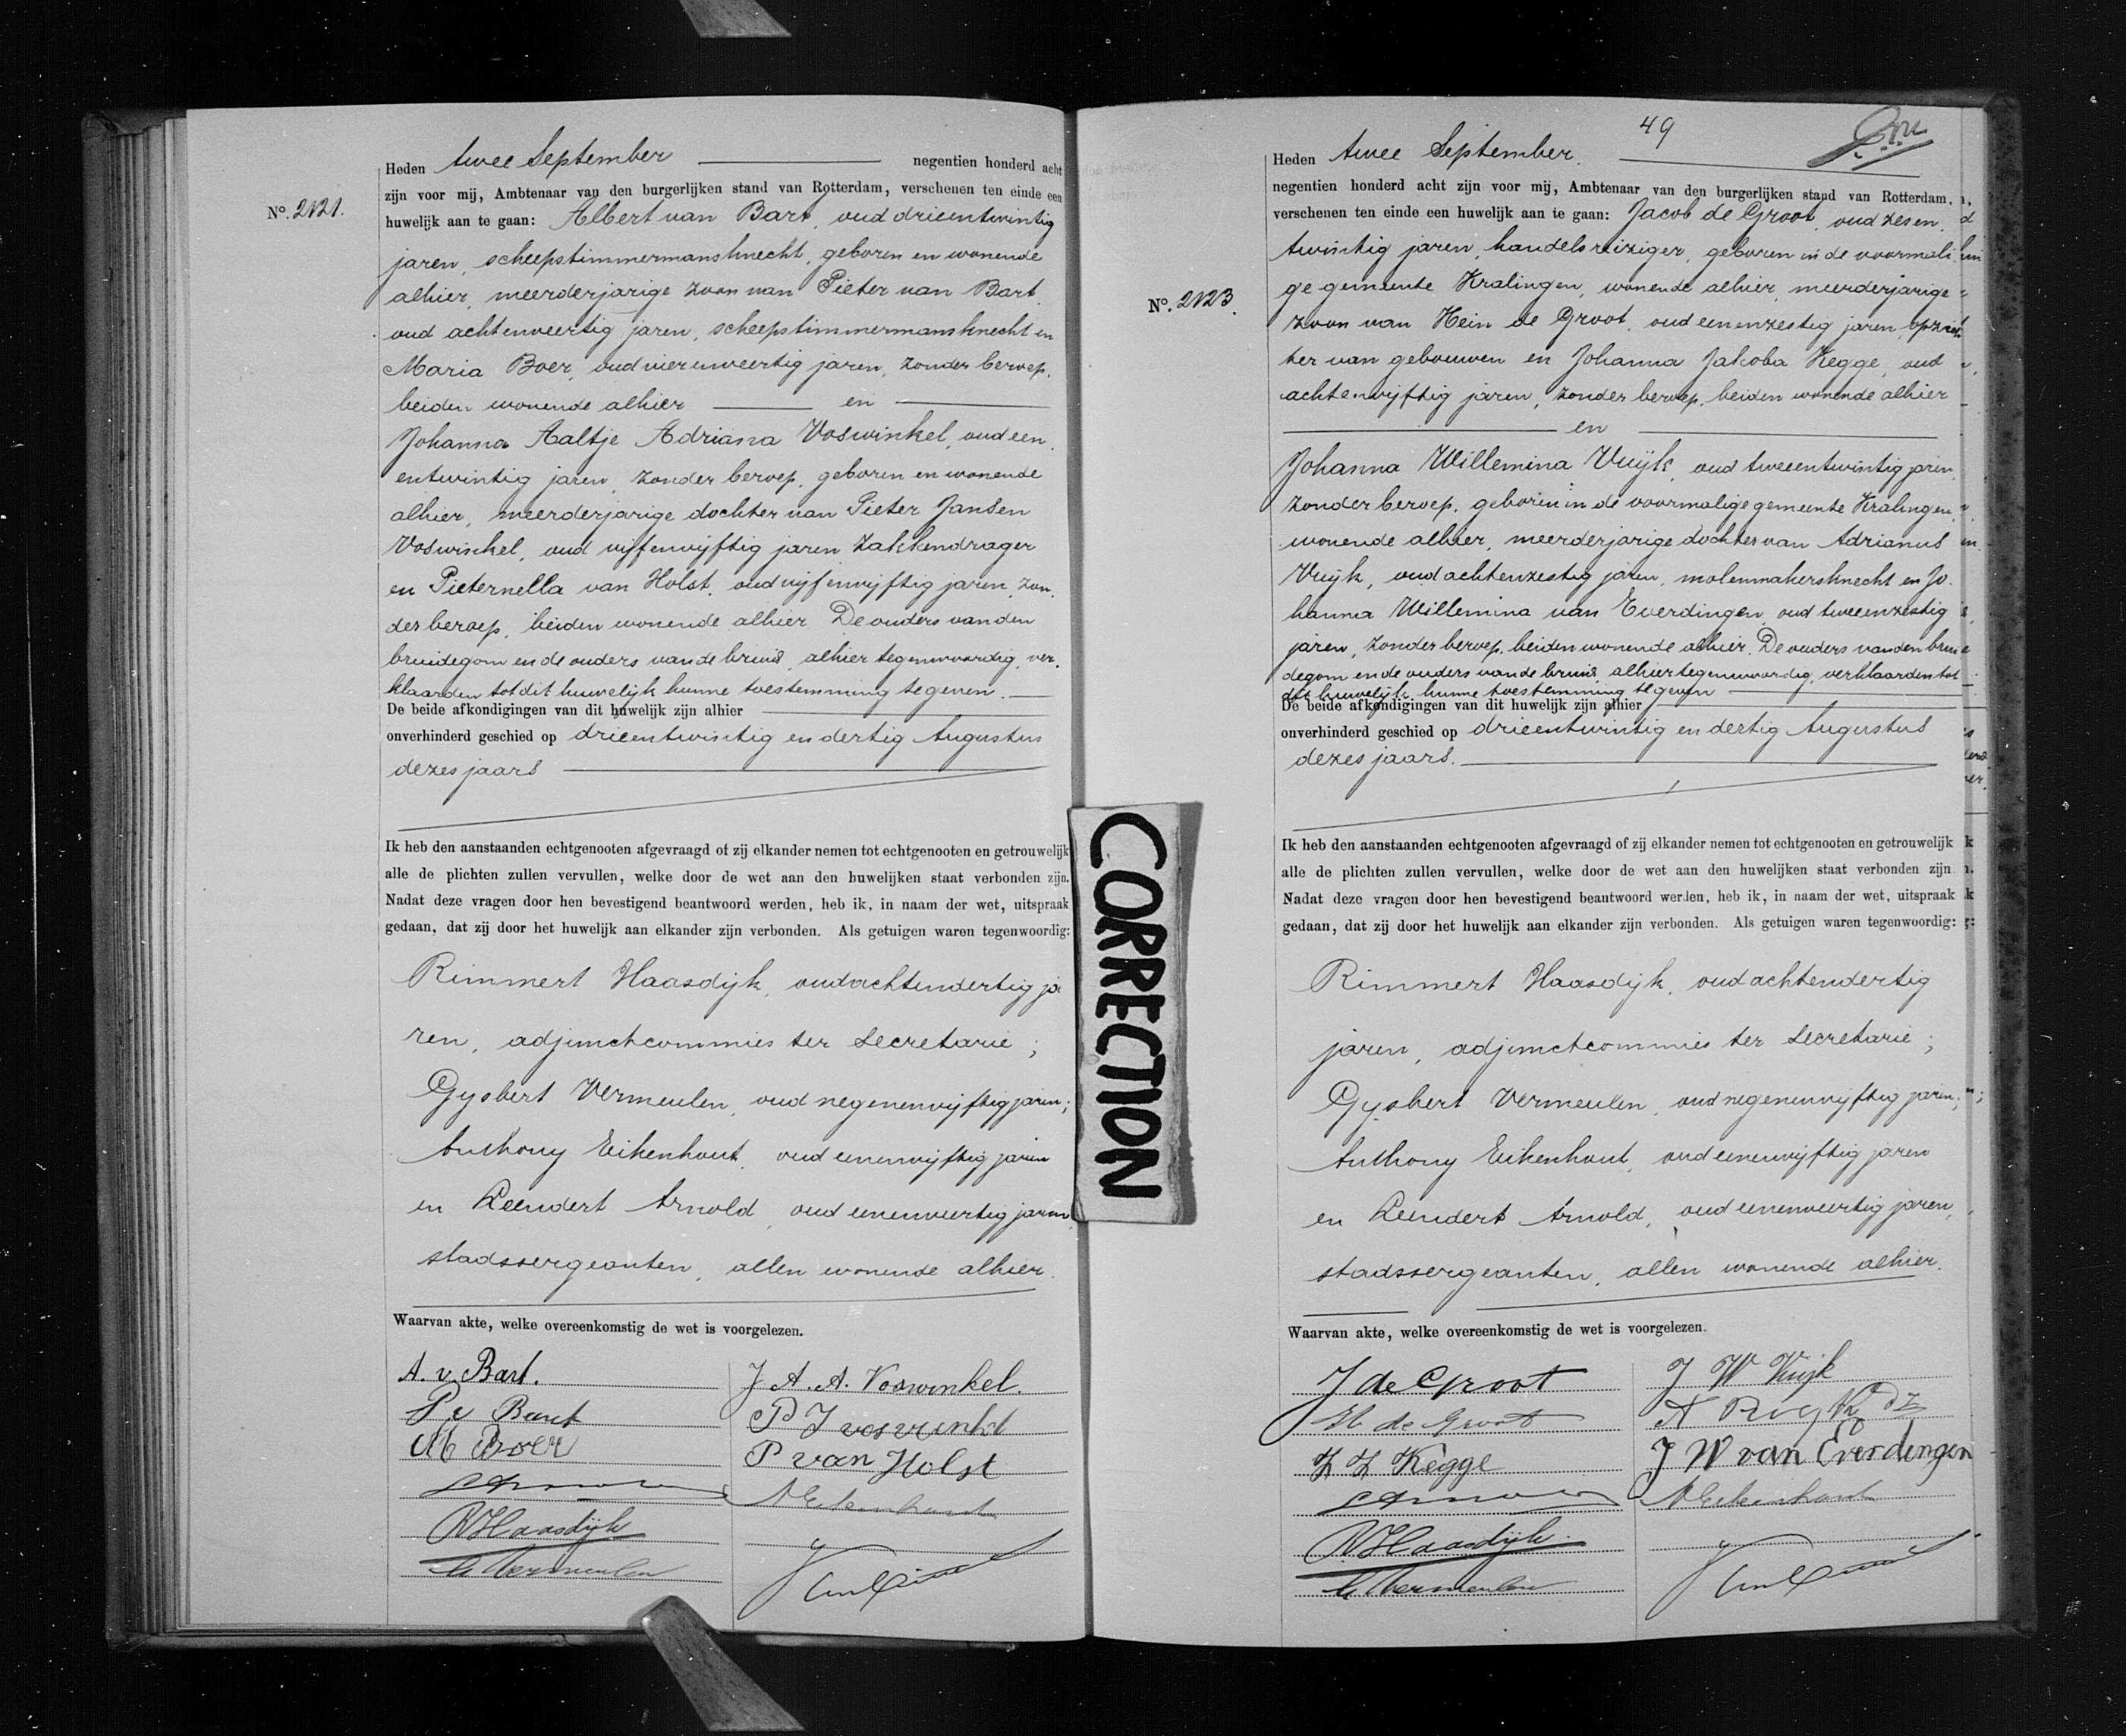 Heden twee September negentien honderd acht
zijn voor mij, Ambtenaar van den burgerlijken stand van Rotterdam, verschenen ten einde een
No. 2121.
huwelijk aan te gaan: Albert van Bart, oud drieentwintig
jaren, scheepstimmermansknecht, geboren en wonende
alhier, meerderjarige zoon van Pieter van Bart,
oud achtenveertig jaren, scheepstimmermansknecht en
Maria Boer, oud vierenveertig jaren, zonder beroep,
beiden wonende alhier en
Johanna Aaltje Adriana Voswinkel, oud een
entwintig jaren, zonder beroep, geboren en wonende
alhier, meerderjarige dochter van Pieter Jansen
Voswinkel, oud vijfenvijftig jaren zakkendrager
en Pieternella van Holst, oud vijfenvijftig jaren, zon
der beroep, beiden wonende alhier. De ouders van den
bruidegom en de ouders van de bruid, alhier tegenwoordig, ver
klaarden tot dit huwelijk hunne toestemming te geven.
De beide afkondigingen van dit huwelijk zijn alhier
onverhinderd geschied op drieentwintig en dertig Augustus
dezes jaars
Ik heb den aanstaanden echtgenooten afgevraagd of zij elkander nemen tot echtgenooten en getrouwelijk
alle de plichten zullen vervullen, welke door de wet aan den huwelijken staat verbonden zijn.
Nadat deze vragen door hen bevestigend beantwoord werden, heb ik, in naam der wet, uitspraak
gedaan, dat zij door het huwelijk aan elkander zijn verbonden. Als getuigen waren tegenwoordig:
Rimmert Haasdijk, oud achtendertig ja
ren, adjunctcommies ter Secretarie;
Gysbert Vermeulen, oud negenenvijftig jaren;
Anthony Eikenhout, oud eenenvijftig jaren
en Leendert Arnold, oud eenenveertig jaren,
stadssergeanten, allen wonende alhier.
Waarvan akte, welke overeenkomstig de wet is voorgelezen.
A. v. Bart.
P v Bart
M Boer
R Haasdijk
G Vermeulen
J. A. A. Voswinkel.
P J voswinkel
P van Holst
A Eikenhout
CORRECTION
49
Heden twee September.
negentien honderd acht zijn voor mij, Ambtenaar van den burgerlijken stand van Rotterdam,
verschenen ten einde een huwelijk aan te gaan: Jacob de Groot, oud zesen
twintig jaren, handelsreiziger, geboren in de voormali
ge gemeente Kralingen, wonende alhier, meerderjarige
No. 2123.
zoon van Hein de Groot, oud eenenzestig jaren, opzich
ter van gebouwen en Johanna Jakoba Kegge, oud
achtenvijftig jaren, zonder beroep, beiden wonende alhier
en
Johanna Willemina Vuijk, oud tweeentwintig jaren
zonder beroep, geboren in de voormalige gemeente Kralingen,
wonende alhier, meerderjarige dochter van Adrianus
Vuijk, oud achtenzestig jaren, molenmakersknecht en Jo
hanna Willemina van Everdingen, oud tweeenzestig
jaren, zonder beroep, beiden wonende alhier. De ouders van den brui
degom en de ouders van de bruid, alhier tegenwoordig, verklaarden tot
dit huwelijk hunne toestemming te geven
De beide afkondigingen van dit huwelijk zijn alhier
onverhinderd geschied op drieentwintig en dertig Augustus
dezes jaars.
Ik heb den aanstaanden echtgenooten afgevraagd of zij elkander nemen tot echtgenooten en getrouwelijk
alle de plichten zullen vervullen, welke door de wet aan den huwelijken staat verbonden zijn
Nadat deze vragen door hen bevestigend beantwoord werden, heb ik, in naam der wet, uitspraak
gedaan, dat zij door het huwelijk aan elkander zijn verbonden. Als getuigen waren tegenwoordig:
Rimmert Haasdijk, oud achtendertig
jaren, adjunctcommies ter Secretarie;
Gysbert Vermeulen, oud negenenvijftig jaren;
Anthony Eikenhout, oud eenenvijftig jaren
en Leendert Arnold, oud eenenveertig jaren,
stadssergeanten, allen wonende alhier.
Waarvan akte, welke overeenkomstig de wet is voorgelezen.
J de Groot
H de Groot
J J Kegge
R Haasdijk
G Vermeulen
J W Vuijk
J W van Everdingen
A Eikenhout